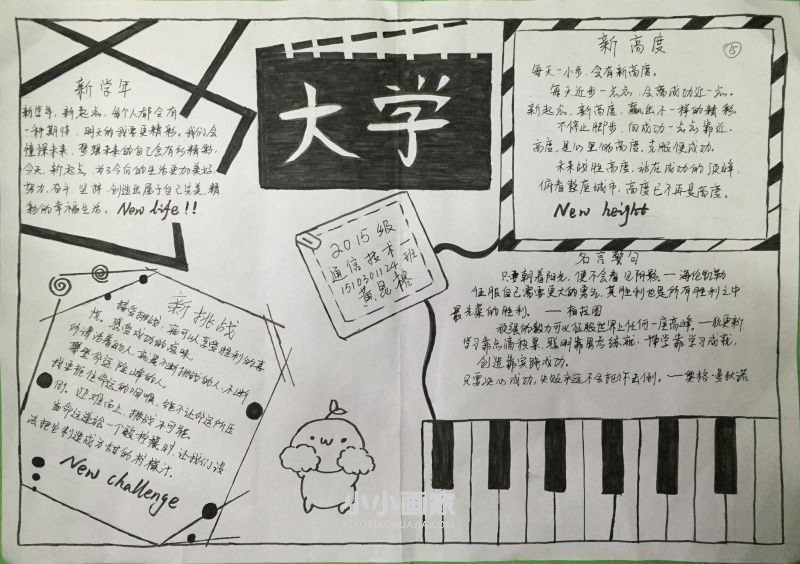 大学
新学年
新学年，新起点，每个人都会有
一种期待，明天的我要更精彩。我们会
憧憬未来，梦想未来的自己会有多精彩，
今天，新起点，为了今后的生活更加美好，
努力，奋斗，坚持，创造出属于自己完美，精
彩的幸福生活。New life!!
新高度
15
每天一小步，会有新高度。
每天进步一点点，会离成功近一点。
新起点，新高度，赢出不一样的精彩，
不停止脚步，向成功一点点靠近，
高度，是心里的高度，克服便成功。
未来战胜高度，站在成功的顶峰，
俯看整座城市，高度已不再是高度。
New height
2015级
通信技术
1510301124班
黄昆榕
名言警句
只要朝着阳光，便不会看见阴影 — 海伦凯勒
征服自己需要更大的勇气，其胜利也是所有胜利之中
最光荣的胜利。 — 柏拉图
顽强的毅力可以征服世界上任何一座高峰。— 狄更斯
学习靠点滴积累，熟则靠展志练就，博学靠学习成就，
创造靠实践成功。
只要决心成功，失败永远不会把你击倒。 — 奥格·曼狄诺
新挑战
接受挑战，就可以享受胜利的喜
悦，感受成功的滋味。
所谓活着的人，就是不断挑战的人，不断
攀登命运险峰的人。
我要扼住命运的咽喉，绝不让命运所压
倒。迎难而上，挑战不可能。
当命运递给一个酸柠檬时，让我们设
法把它制造成甜的柠檬汁。
New challenge
小小画家
XIAOXIAOHUAJIA.COM